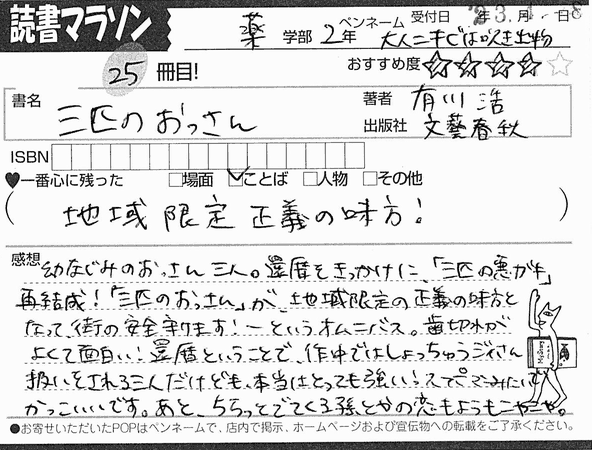 読書マラソン
薬 学部 2年
ペンネーム
受付日 年 3月 日
25 冊目!
おすすめ度 ★★★★☆
書名 三匹のおっさん
著者 有川 浩
出版社 文藝春秋
ISBN
♥一番心に残った □場面 ☑ことば □人物 □その他
(地域限定正義の味方!)
感想 幼なじみのおっさん三人。還暦をきっかけに、「三匹の悪ガキ」
再結成!「三匹のおっさん」が、地域限定の正義の味方と
なって、街の安全守ります!―というオムニバス。歯切れが
よくて面白い!還暦ということで、作中ではしょっちゅうジイさん
扱いをされる三人だけども、本当はとっても強い!スーパーマンみたいで
かっこいいです。あと、ちらっとでてくる孫とかの恋もようもニヤニヤ。
●お寄せいただいたPOPはペンネームで、店内で掲示、ホームページおよび宣伝物への転載をご了承ください。